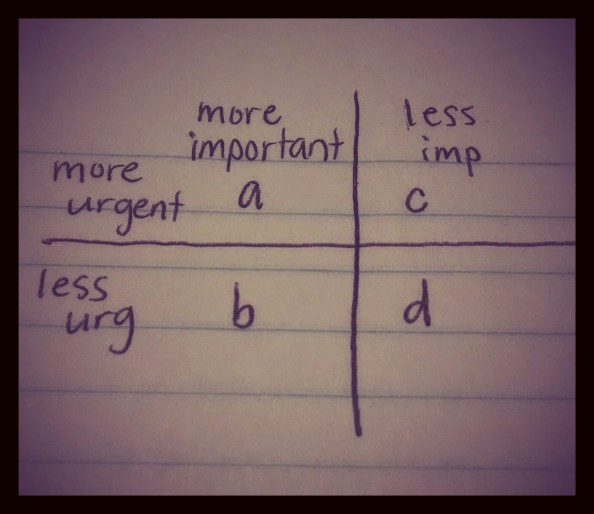 more less
important imp
more
urgent a c
less
urg b d